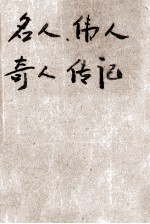 名人、伟人
奇人传记